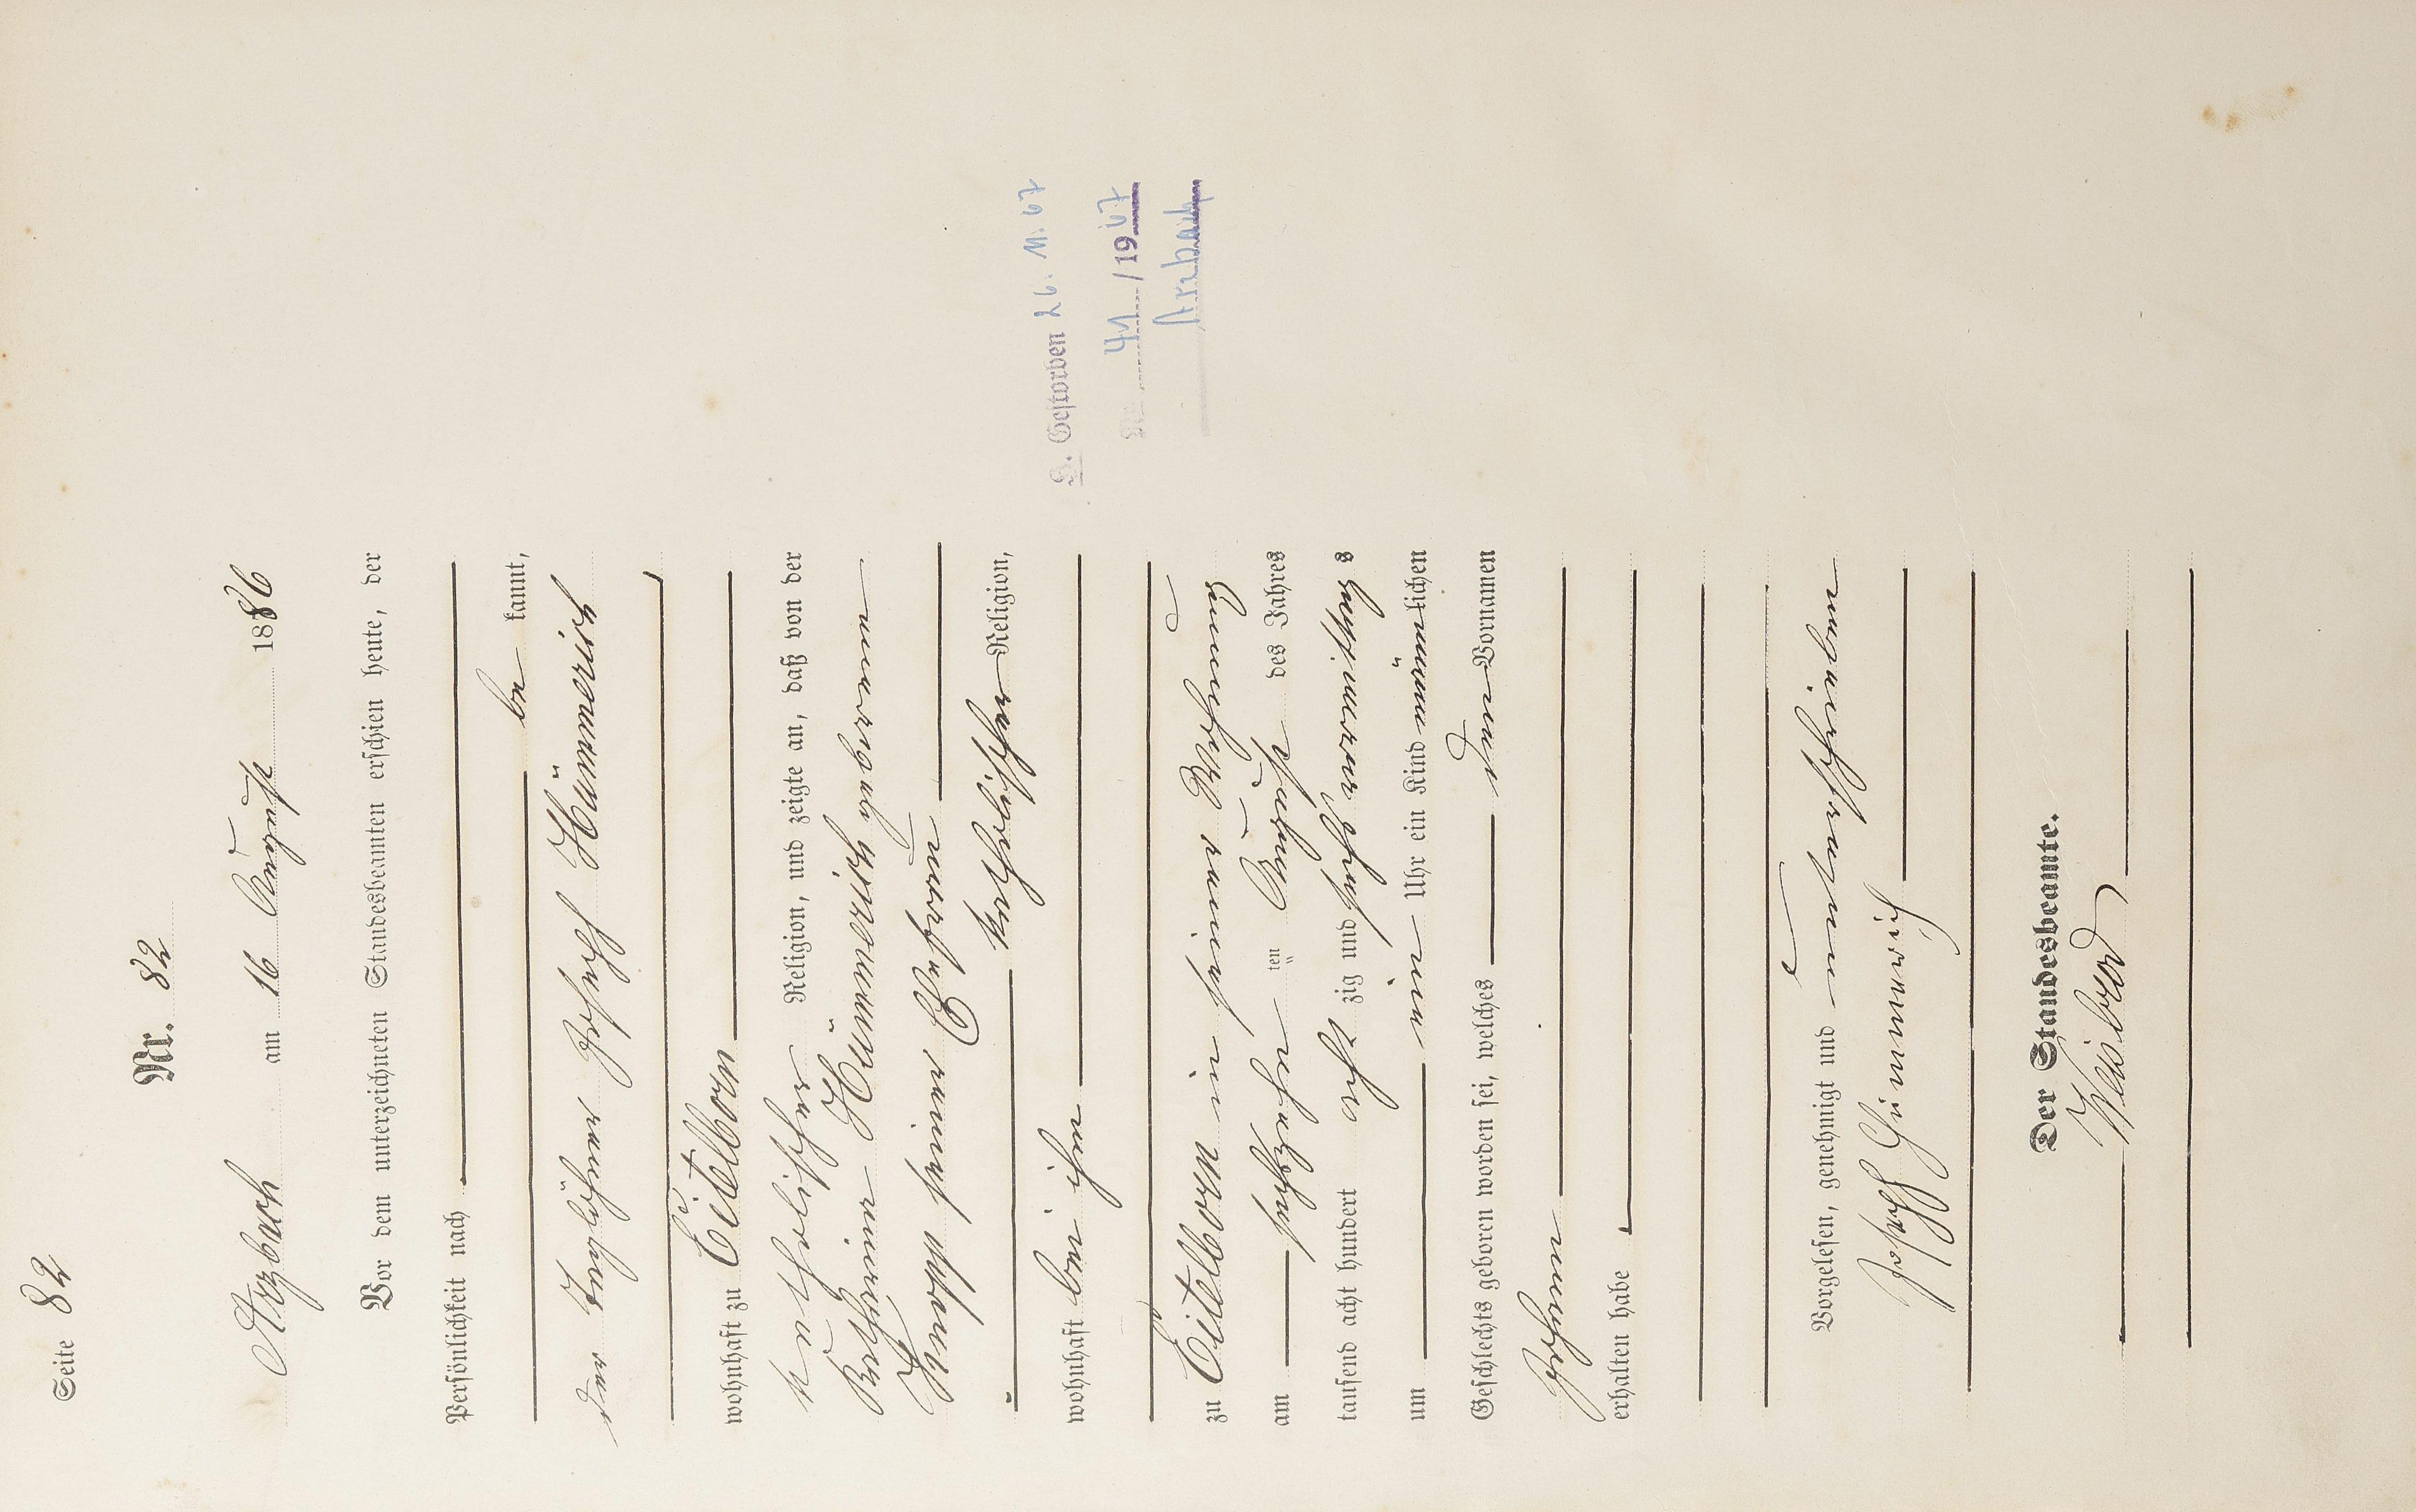 Seite 82
Nr. 82
Arzbach am 16 August 1886
Vor dem unterzeichneten Standesbeamten erschien heute, der
Persönlichkeit nach
be kannt,
der Taglöhner Joseph Hümmerich
wohnhaft zu Eitelborn
katholischer Religion, und zeigte an, daß von der
Katharina Hümmerich geborenen
Knopp seiner Ehefrau
katholischer Religion,
wohnhaft bei ihm
zu Eitelborn in seiner Wohnung
am sechzehn ten August des Jahres
tausend acht hundert acht zig und sechs Vormittags
um ein Uhr ein Kind männlichen
Geschlechts geboren worden sei, welches den Vornamen
Johann
erhalten habe
Vorgelesen, genehmigt und unterschrieben
Joseph Hümmerich
Der Standesbeamte.
Weisbrod
Gestorben 26. 11. 67
Nr. 41 /1967
Arzbach